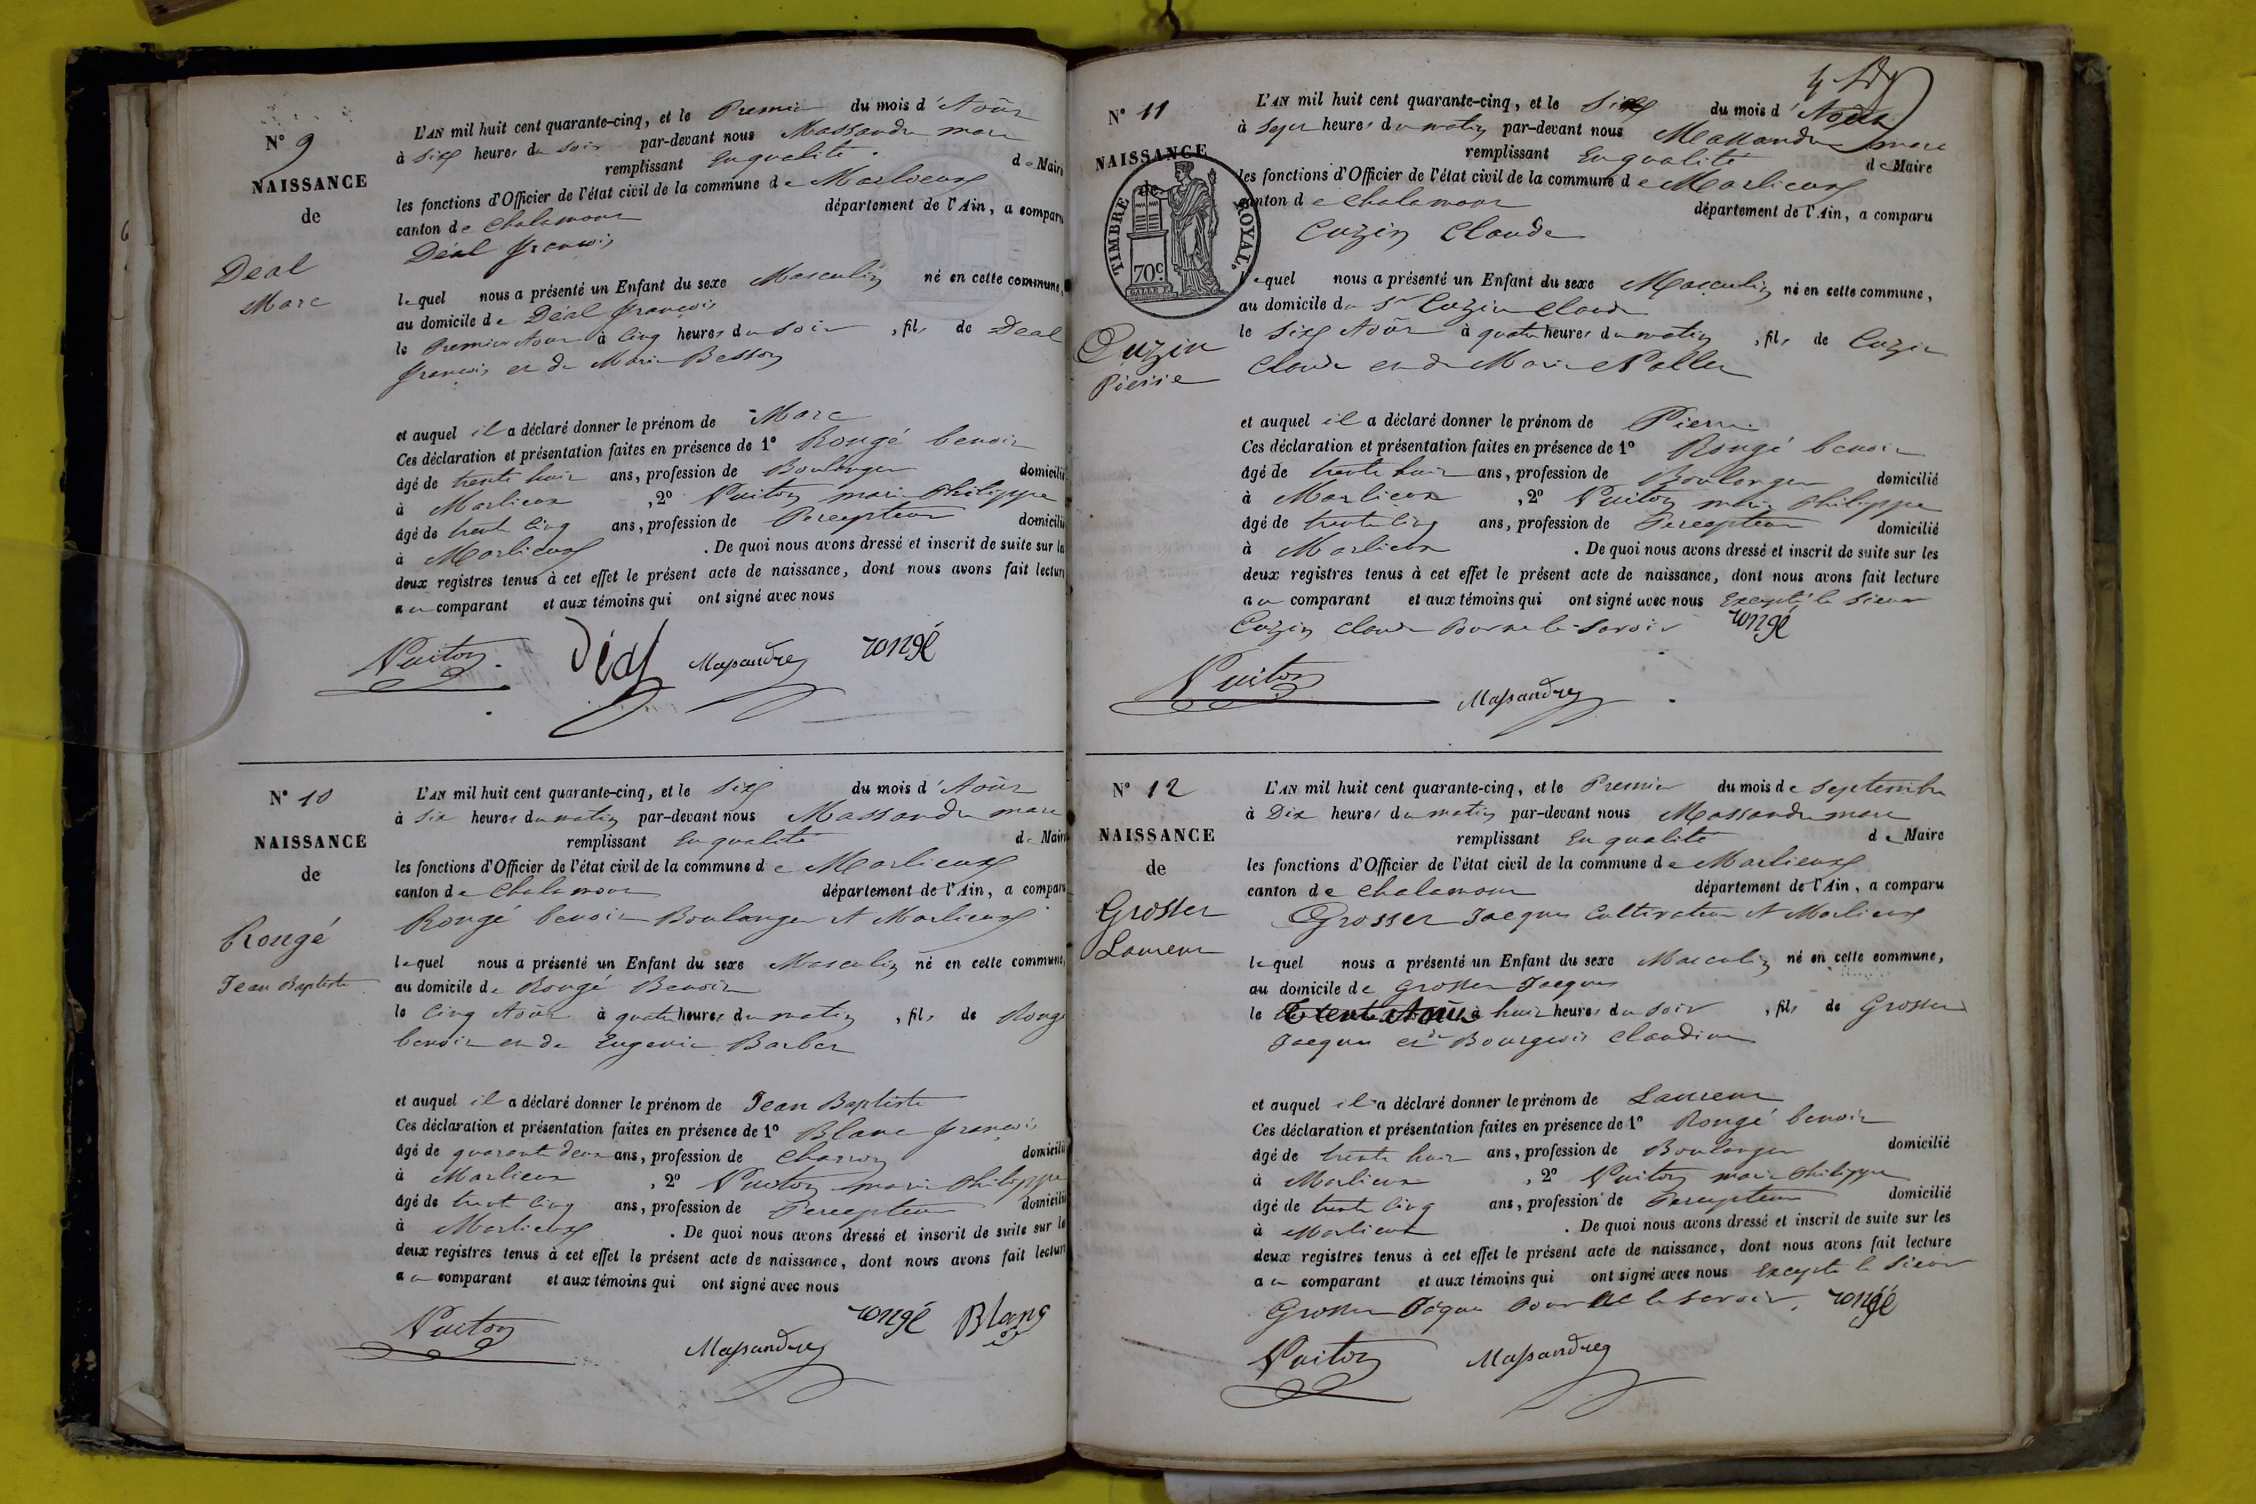 N° 9
NAISSANCE
de
Déal
Marc
L'AN mil huit cent quarante-cinq, et le Premier du mois d'Aoûт
à six heures du soir par-devant nous Massandre marc
remplissant En qualité de Maire
les fonctions d'Officier de l'état civil de la commune de Marlieux
canton de Chalamont département de l'Ain, a comparu
Déal françois
lequel nous a présenté un Enfant du sexe Masculin né en cette commune,
au domicile de Déal françois
le Premier Aout à cinq heures du soir, fils de Déal
françois et de Marie Besson
et auquel il a déclaré donner le prénom de Marc
Ces déclaration et présentation faites en présence de 1° Rongé benoit
âgé de trente huit ans, profession de Boulanger domicilié
à Marlieux, 2° Vuiton marie Philippe
âgé de trente cinq ans, profession de Percepteur domicilié
à Marlieux. De quoi nous avons dressé et inscrit de suite sur le
deux registres tenus à cet effet le présent acte de naissance, dont nous avons fait lecture
au comparant et aux témoins qui ont signé avec nous
Vuiton Déal Massandre rongé
N° 10
NAISSANCE
de
Rongé
Jean Baptiste
L'AN mil huit cent quarante-cinq, et le six du mois d'Août
à six heures du matin par-devant nous Massandre marc
remplissant En qualité de Maire
les fonctions d'Officier de l'état civil de la commune de Marlieux
canton de Chalamont département de l'Ain, a comparu
Rongé benoit Boulanger A Marlieux
lequel nous a présenté un Enfant du sexe Masculin né en cette commune,
au domicile de Rongé Benoit
le cinq Août à quatre heures du matin, fils de Rongé
benoit et de Eugenie Barbet
et auquel il a déclaré donner le prénom de Jean Baptiste
Ces déclaration et présentation faites en présence de 1° Blanc françois
âgé de quarante deux ans, profession de Charron domicilié
à Marlieux, 2° Vuiton marie Philippe
âgé de trente cinq ans, profession de Percepteur domicilié
à Marlieux. De quoi nous avons dressé et inscrit de suite sur le
deux registres tenus à cet effet le présent acte de naissance, dont nous avons fait lecture
au comparant et aux témoins qui ont signé avec nous
Vuiton Massandre rongé Blanc
N° 11
NAISSANCE
de
TIMBRE ROYAL.
70c
Cuzin
Pierre
L'AN mil huit cent quarante-cinq, et le six du mois d'Août
à sept heures du matin par-devant nous Massandre marc
remplissant En qualité de Maire
les fonctions d'Officier de l'état civil de la commune de Marlieux
canton de Chalamont département de l'Ain, a comparu
Cuzin Claude
lequel nous a présenté un Enfant du sexe Masculin né en cette commune,
au domicile du Sr Cuzin Claude
le six Août à quatre heures du matin, fils de Cuzin
Claude et de Marie
et auquel il a déclaré donner le prénom de Pierre
Ces déclaration et présentation faites en présence de 1° Rongé benoit
âgé de trente huit ans, profession de Boulanger domicilié
à Marlieux, 2° Vuiton marie Philippe
âgé de trente cinq ans, profession de Percepteur domicilié
à Marlieux. De quoi nous avons dressé et inscrit de suite sur les
deux registres tenus à cet effet le présent acte de naissance, dont nous avons fait lecture
au comparant et aux témoins qui ont signé avec nous Excepté le sieur
Cuzin Claude Pour ne le savoir rongé
Vuiton Massandre
N° 12
NAISSANCE
de
Grosser
Laurent
L'AN mil huit cent quarante-cinq, et le Premier du mois de septembre
à Dix heures du matin par-devant nous Massandre marc
remplissant En qualité de Maire
les fonctions d'Officier de l'état civil de la commune de Marlieux
canton de Chalamont département de l'Ain, a comparu
Grosser Jacques Cultivateur A Marlieux
lequel nous a présenté un Enfant du sexe Masculin né en cette commune,
au domicile de Grosser Jacques
le trente Août à huit heures du soir, fils de Grosser
Jacques et de Bourgeois Claudine
et auquel il a déclaré donner le prénom de Laurent
Ces déclaration et présentation faites en présence de 1° Rongé benoit
âgé de trente huit ans, profession de Boulanger domicilié
à Marlieux, 2° Vuiton marie Philippe
âgé de trente cinq ans, profession de Percepteur domicilié
à Marlieux. De quoi nous avons dressé et inscrit de suite sur les
deux registres tenus à cet effet le présent acte de naissance, dont nous avons fait lecture
au comparant et aux témoins qui ont signé avec nous Excepté le sieur
Grosser Jacques Pour ne le savoir. rongé
Vuiton Massandre